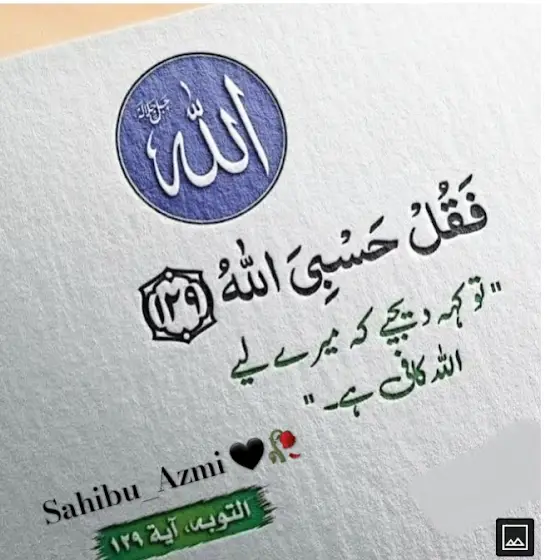 الله
جل جلاله
فَقُلْ حَسْبِيَ اللّٰهُ ۝١٢٩
"تو کہہ دیجیے کہ میرے لیے
اللہ کافی ہے۔"
Sahibu_Azmi🖤🥀
التوبہ، آية ١٢٩